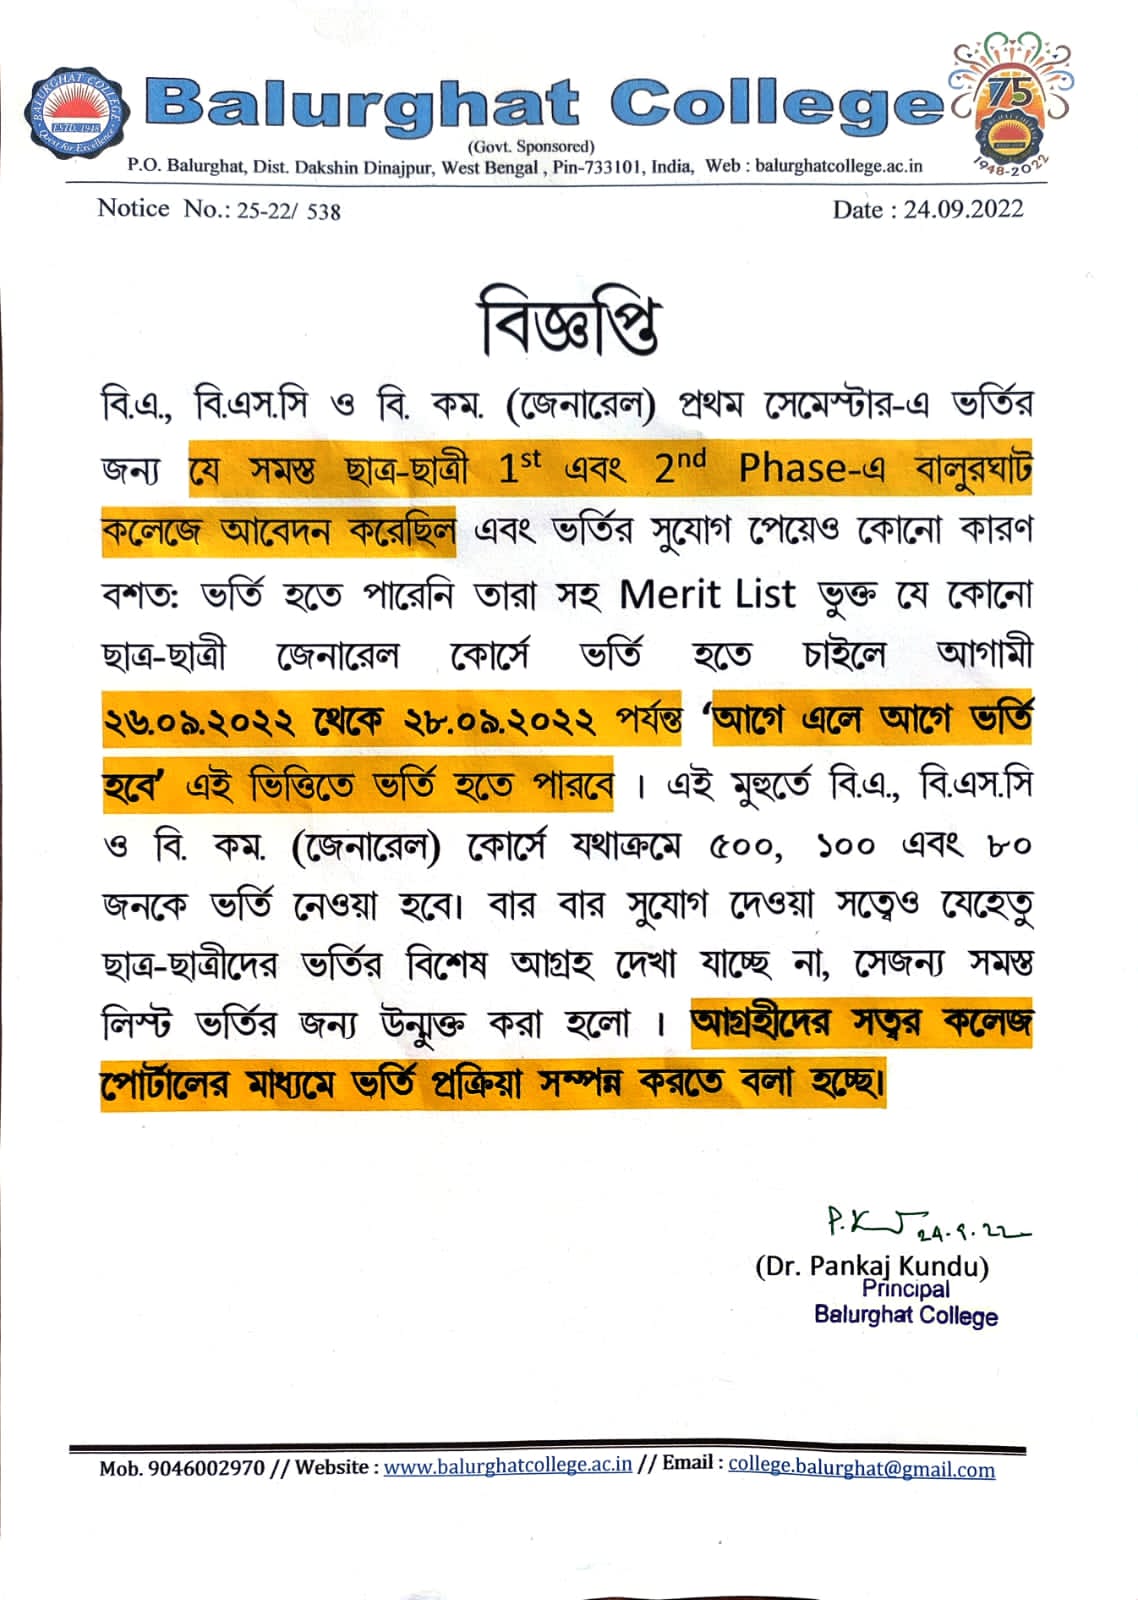 Balurghat College
(Govt. Sponsored)
P.O. Balurghat, Dist. Dakshin Dinajpur, West Bengal , Pin-733101, India, Web : balurghatcollege.ac.in
BALURGHAT COLLEGE
ESTD. 1948
Quest for Excellence
75
1948-2022
Notice No.: 25-22/ 538 Date : 24.09.2022
বিজ্ঞপ্তি
বি.এ., বি.এস.সি ও বি. কম. (জেনারেল) প্রথম সেমেস্টার-এ ভর্তির
জন্য যে সমস্ত ছাত্র-ছাত্রী 1st এবং 2nd Phase-এ বালুরঘাট
কলেজে আবেদন করেছিল এবং ভর্তির সুযোগ পেয়েও কোনো কারণ
বশত: ভর্তি হতে পারেনি তারা সহ Merit List ভুক্ত যে কোনো
ছাত্র-ছাত্রী জেনারেল কোর্সে ভর্তি হতে চাইলে আগামী
২৬.০৯.২০২২ থেকে ২৮.০৯.২০২২ পর্যন্ত ‘আগে এলে আগে ভর্তি
হবে’ এই ভিত্তিতে ভর্তি হতে পারবে । এই মুহুর্তে বি.এ., বি.এস.সি
ও বি. কম. (জেনারেল) কোর্সে যথাক্রমে ৫০০, ১০০ এবং ৮০
জনকে ভর্তি নেওয়া হবে। বার বার সুযোগ দেওয়া সত্বেও যেহেতু
ছাত্র-ছাত্রীদের ভর্তির বিশেষ আগ্রহ দেখা যাচ্ছে না, সেজন্য সমস্ত
লিস্ট ভর্তির জন্য উন্মুক্ত করা হলো । আগ্রহীদের সত্বর কলেজ
পোর্টালের মাধ্যমে ভর্তি প্রক্রিয়া সম্পন্ন করতে বলা হচ্ছে।
24.9.22
(Dr. Pankaj Kundu)
Principal
Balurghat College
Mob. 9046002970 // Website : www.balurghatcollege.ac.in // Email : college.balurghat@gmail.com